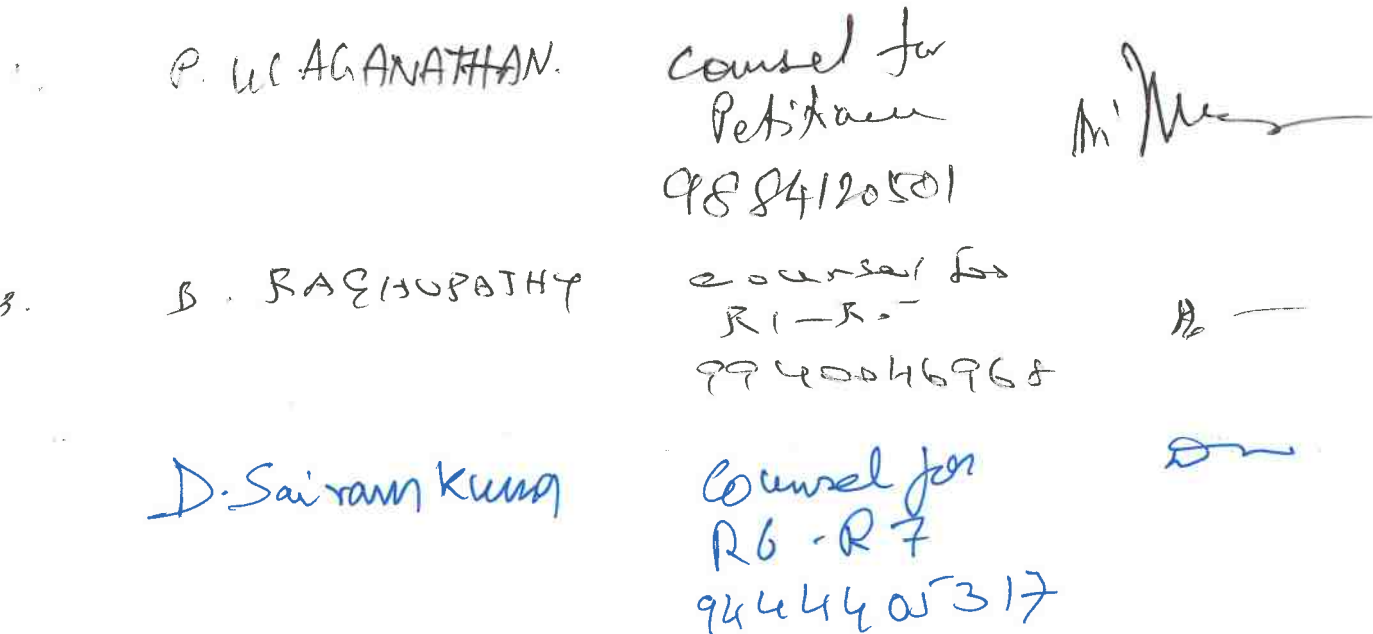 P. ULAGANATHAN.
Counsel for
Petitioner
9884120501
3.
B. RAGHUPATHY
counsel for
R1 – R5
9940046968
D. Sairam Kumar
Counsel for
R6 - R7
9444405317